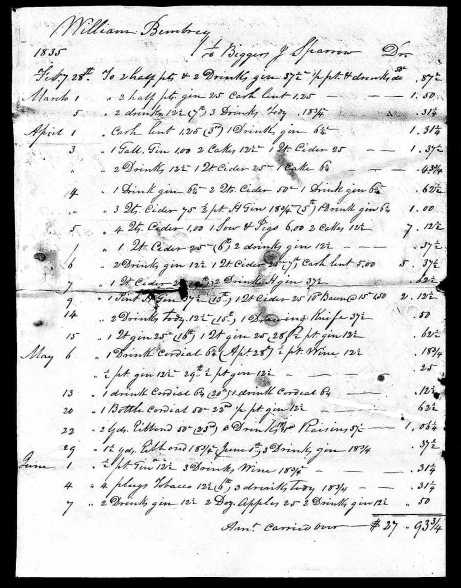 William Bembrey
1835 To Biggers J Sparrow Dr
Feby 28th To 2 half pts & 2 Drinks gin 37½ p pt & drinks do . 87½
March 1 " 2 half pts gin 25 Cash lent 1,25 1. 50
5 " 2 drinks 12½ (7th) 3 Drinks Tody 18¾ . 31¼
April 1 " Cash lent 1,25 (3d) 1 Drink gin 6¼ 1. 31¼
3 " 1 Gall. Gin 1,00 2 Cakes 12½ 1 Qt Cider 25 1. 37½
" " 2 Drinks 12½ 1 Qt Cider 25 1 Cake 6¼ . 43¾
4 " 1 Drink gin 6¼ 2 Qts Cider 50 1 Drink gin 6¼ . 62½
" " 3 Qts Cider 75 ½ pt H Gin 18¾ (5th) 1 Drink gin 6¼ 1. 00
5 " 4 Qts Cider 1,00 1 Sow & Pigs 6,00 2 Cakes 12½ 7. 12½
" 1 Qt Cider 25 (6th) 2 drinks gin 12½ . 37½
6 " 2 Drinks gin 12½ 1 Qt Cider 25 (7th) Cash lent 5,00 5. 37½
7 " 1 Qt Cider 25 2 Drinks H gin 37½ 62½
9 " 1 Pint H Gin 37½ (13th) 1 Qt Cider 25 10 lb Bacon @ 15 1,50 2. 12½
14 " 2 Drinks Tody 12½ (15th) 1 Drawing Knife 37½ 50
15 " 1 Qt gin 25 (16th) 1 Qt gin 25 (28) ½ pt gin 12½ . 62½
May 6 " 1 Drink Cordial 6¼ (Apr 28th) ½ pt Wine 12½ . 18¾
" ½ pt gin 12½ 29th ½ pt gin 12½ 25
13 " 1 drink Cordial 6¼ (20th) 1 drink Cordial 6¼ . 12½
20 " 1 Bottle Cordial 50 22d ½ pt gin 12½ 62½
22 " 2 yds Ribbond 50 Drinks & Raisins 37½ 1. 06¼
29 " 1½ yds Ribbond 18¾ (June 1st) 3 Drinks gin 18¾ . 37½
June 1 " ½ pt Gin 12½ 3 Drinks Wine 18¾ . 31¼
4 " 4 plugs Tobacco 12½ (6th) 3 drinks tody 18¾ . 31¼
7 " 2 Drinks gin 12½ 2 Doz. Apples 25 2 Drinks gin 12½ . 50
Amt. Carried Over $ 27 . 93¾